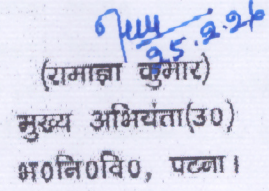 25.2.26
(रामाज्ञा कुमार)
मुख्य अभियंता(उ०)
भ०नि०वि०, पटना।